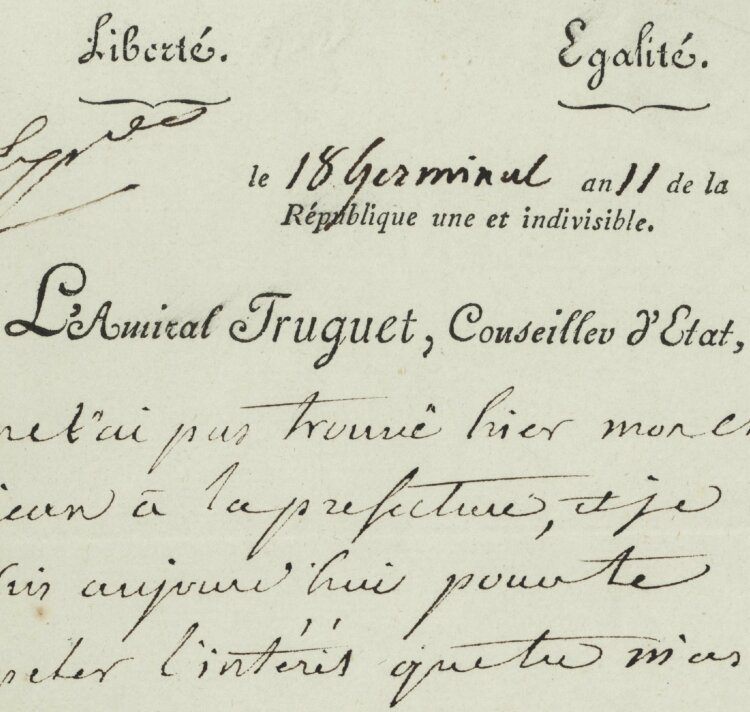 Liberté. Egalité.
le 18 Germinal an 11 de la
République une et indivisible.
L'Amiral Truguet, Conseiller d'Etat,
ne t'ai pas trouvé hier mon ch
à la prefecture, et je
aujourd'hui pour te
l'intérés que tu m'as